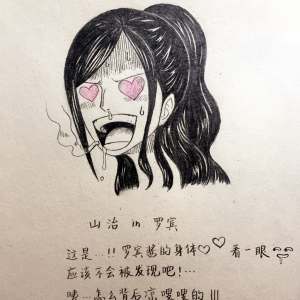 山治 in 罗宾
这是…!! 罗宾酱的身体♡♡ 看一眼
应该不会被发现吧!…
咦…怎么背后凉嗖嗖的!!!